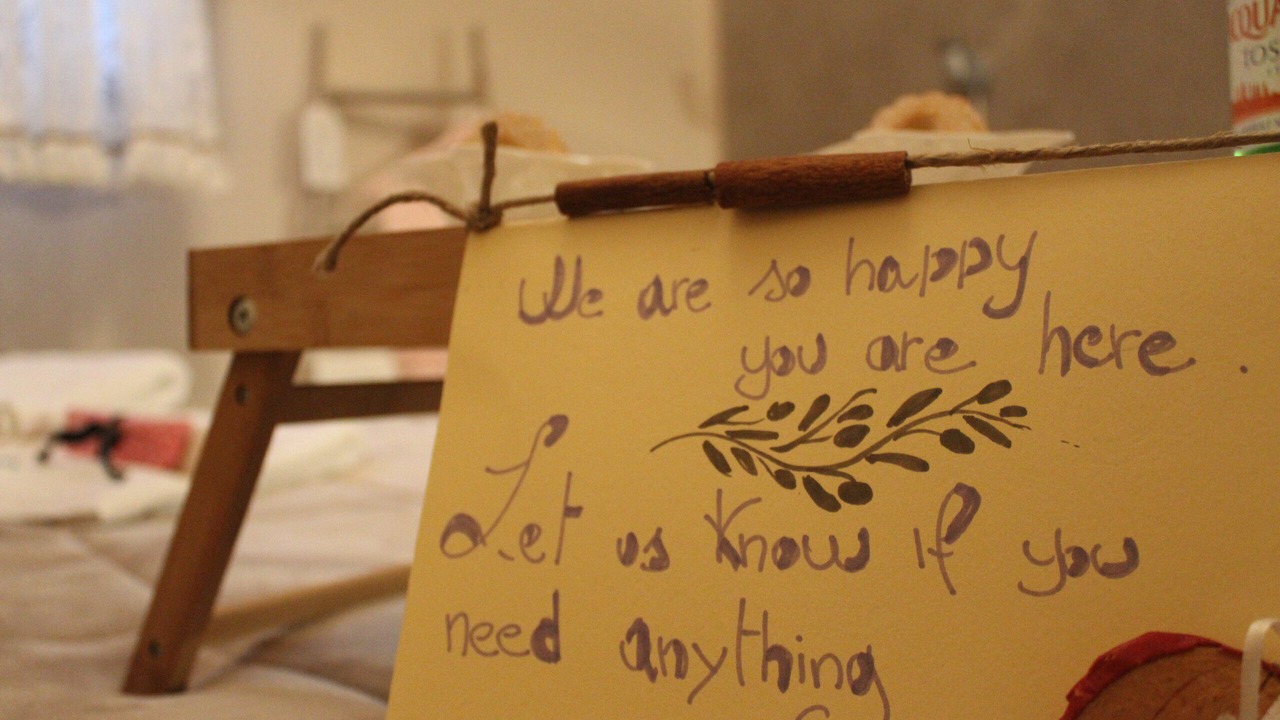 We are so happy
you are here.
Let us know if you
need anything